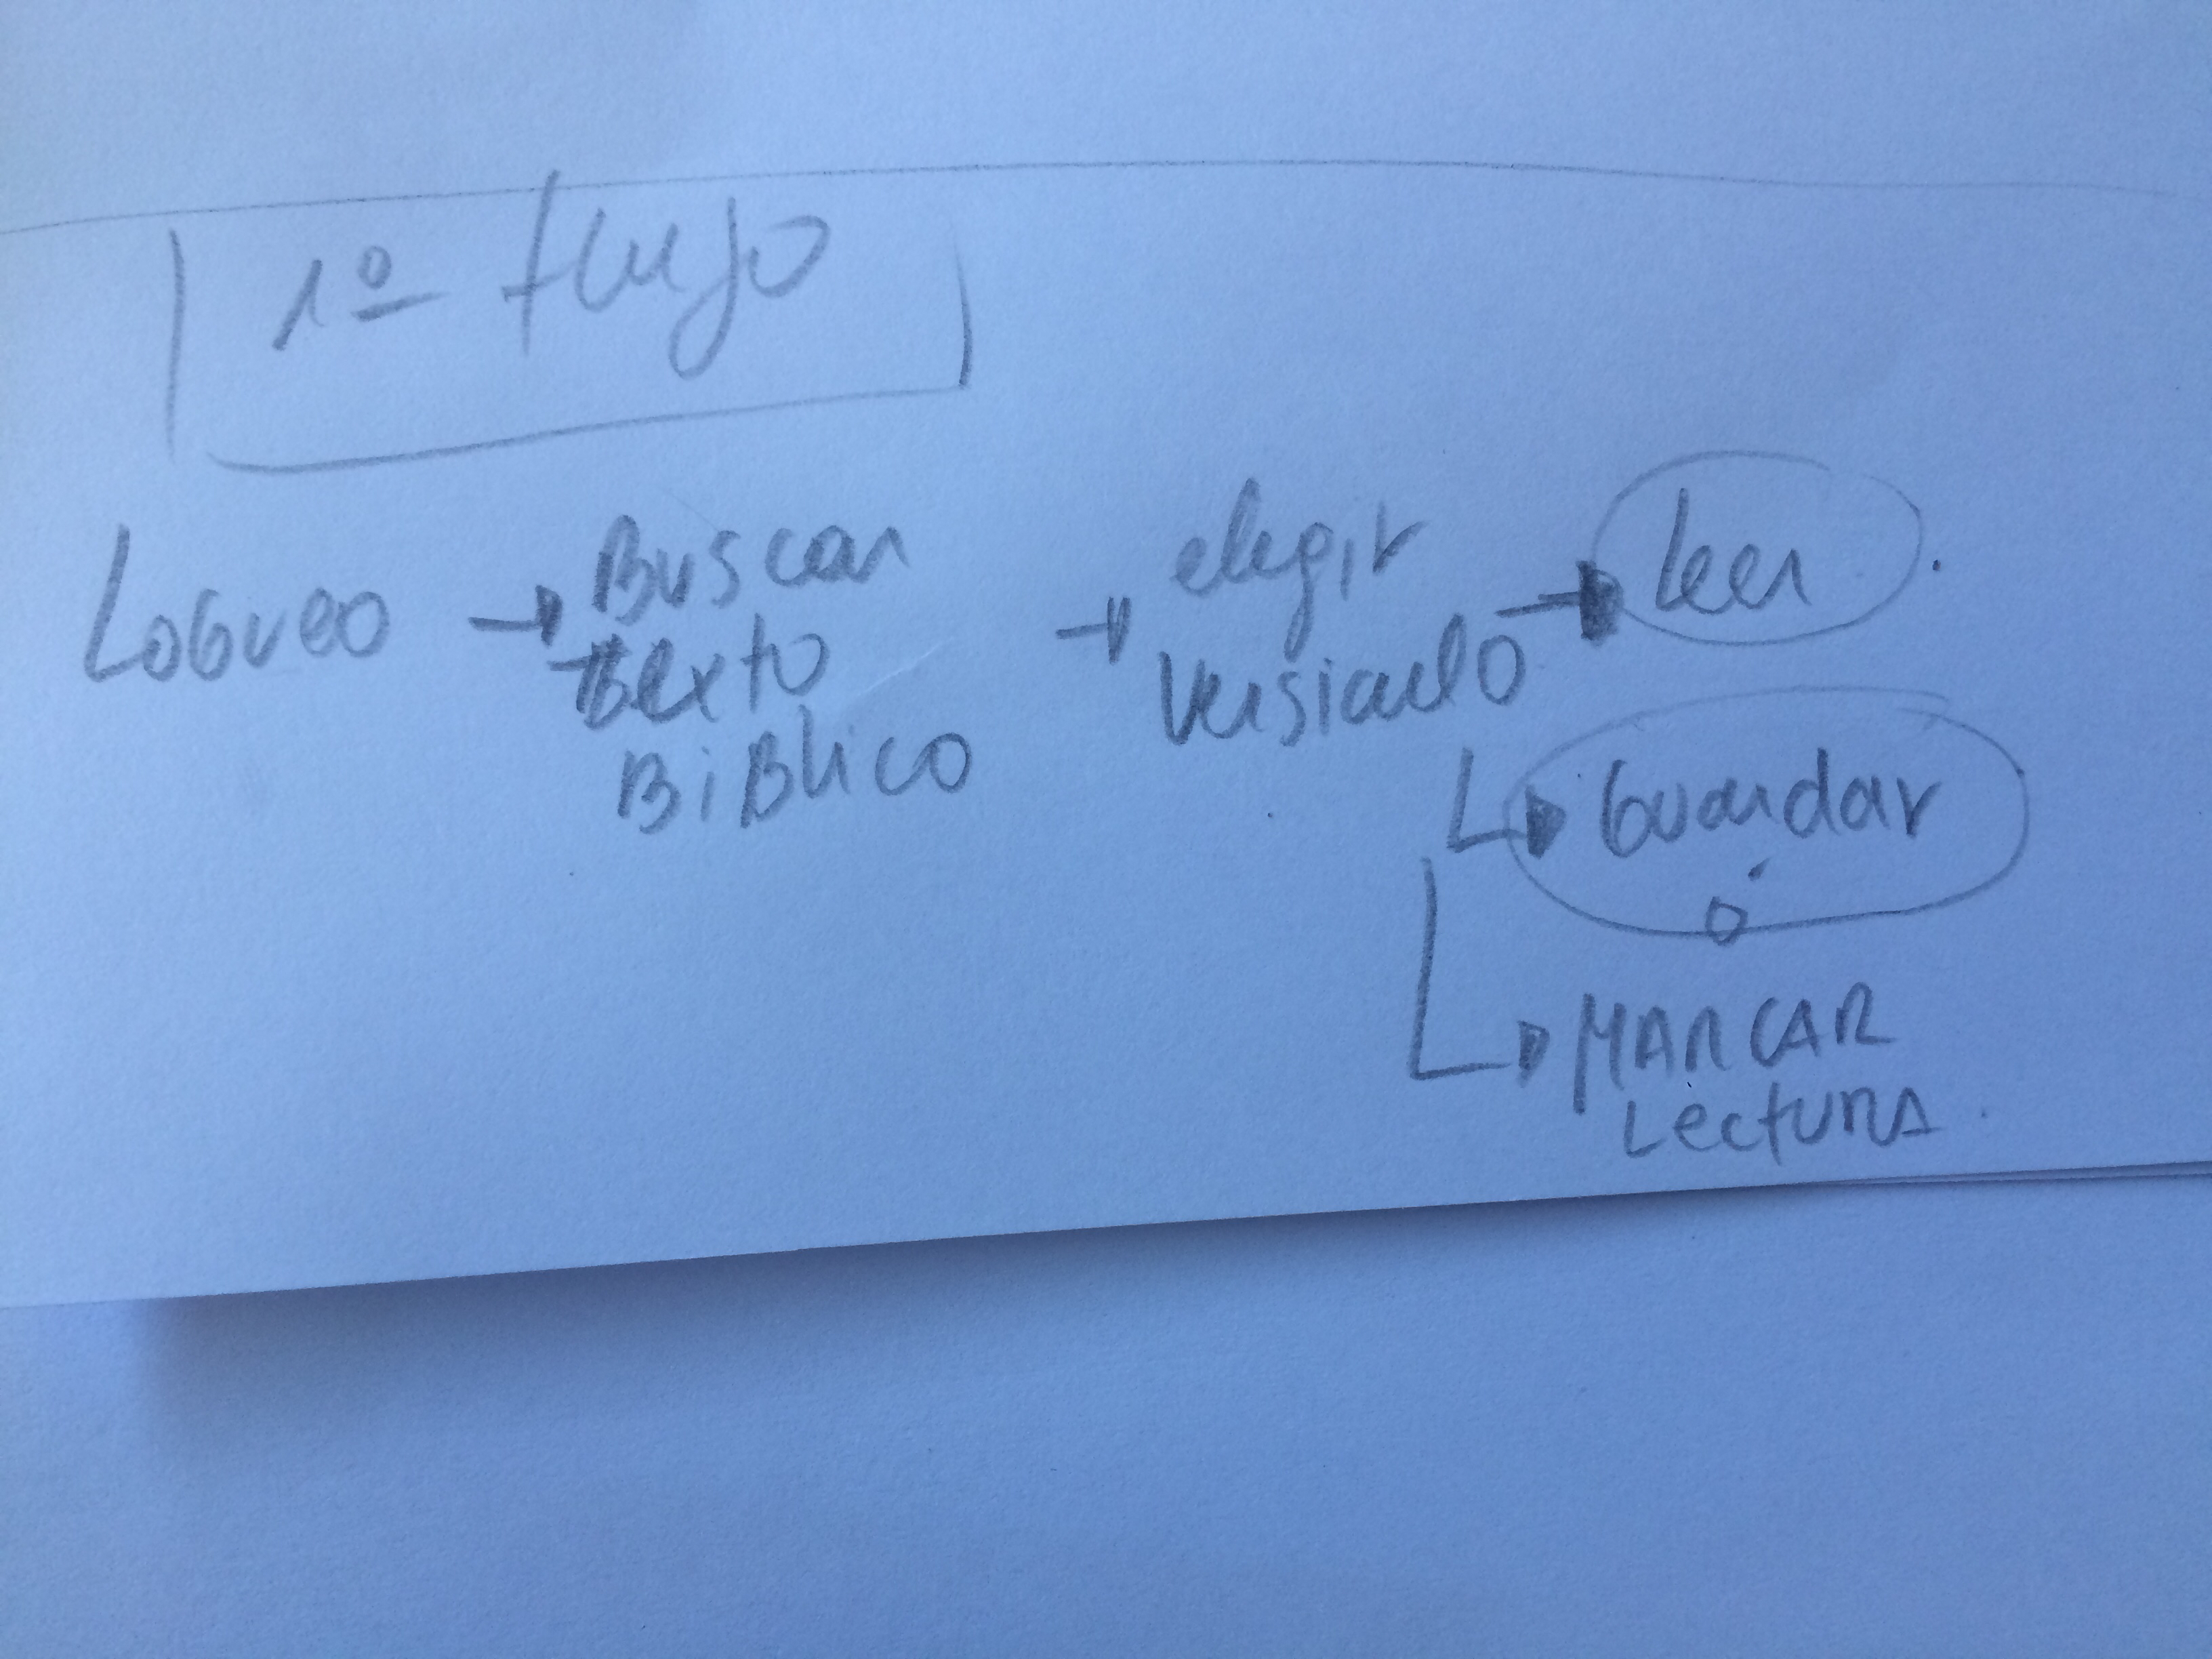 1º flujo
Logueo → Buscar
texto
Biblico
→ elegir
versiculo → leer.
Guardar
ó
MARCAR
Lectura.